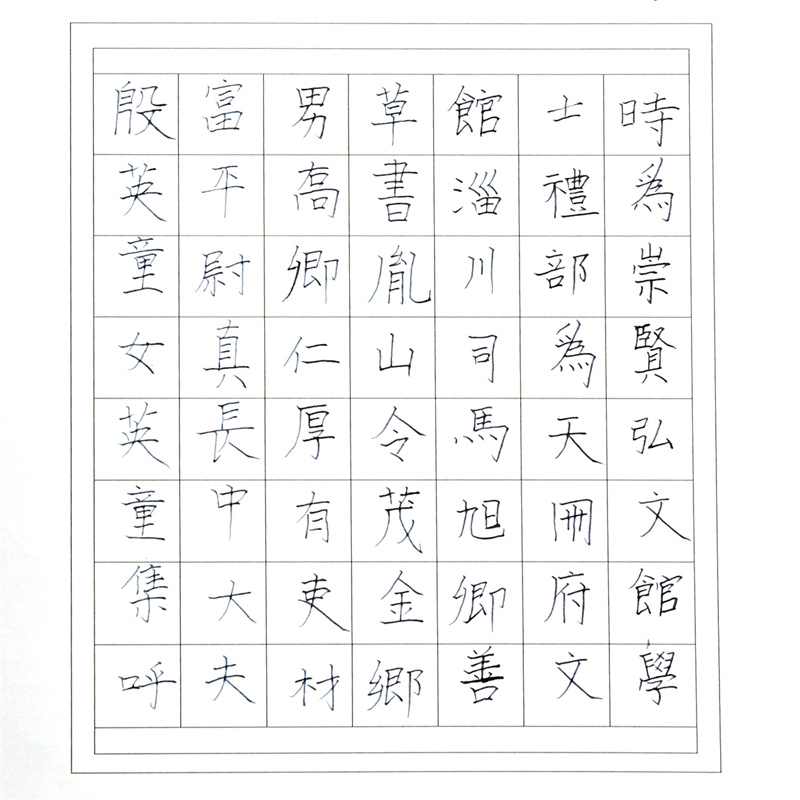 時為崇賢弘文館學
士禮部為天冊府文
館淄川司馬旭卿善
草書胤山令茂金鄉
男高卿仁厚有吏材
富平尉真長中大夫
殷英童女英童集呼